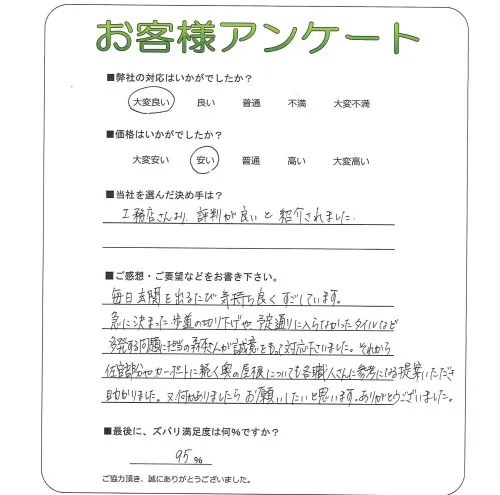 お客様アンケート
■弊社の対応はいかがでしたか?
大変良い 良い 普通 不満 大変不満
■価格はいかがでしたか?
大変安い 安い 普通 高い 大変高い
■当社を選んだ決め手は?
工務店さんより、評判が良いと紹介されました。
■ご感想・ご要望などをお書き下さい。
毎日玄関を出るたび気持ち良くすごしています。
急に決まった歩道の切り下げや予定通りに入らなかったタイルなど
多発する問題に担当の森さんが誠意をもって対応下さいました。それから
佐官部分やカーポートに続く奥の屋根についても各職人さんに参考になる提案いただき
助かりました。又何かありましたらお願いしたいと思います。ありがとうございました。
■最後に、ズバリ満足度は何%ですか?
95%
ご協力頂き、誠にありがとうございました。